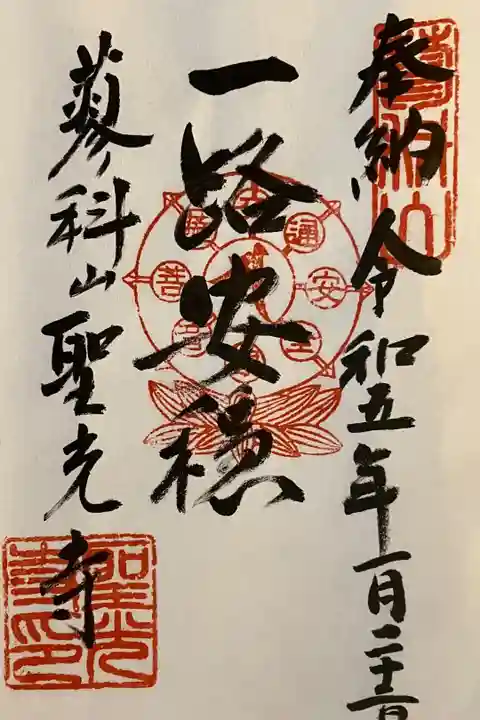 奉納、令和五年一月二十日
一路安穏
蓼科山聖光寺
蓼科山
通
安
全
菩
聖光
寺印